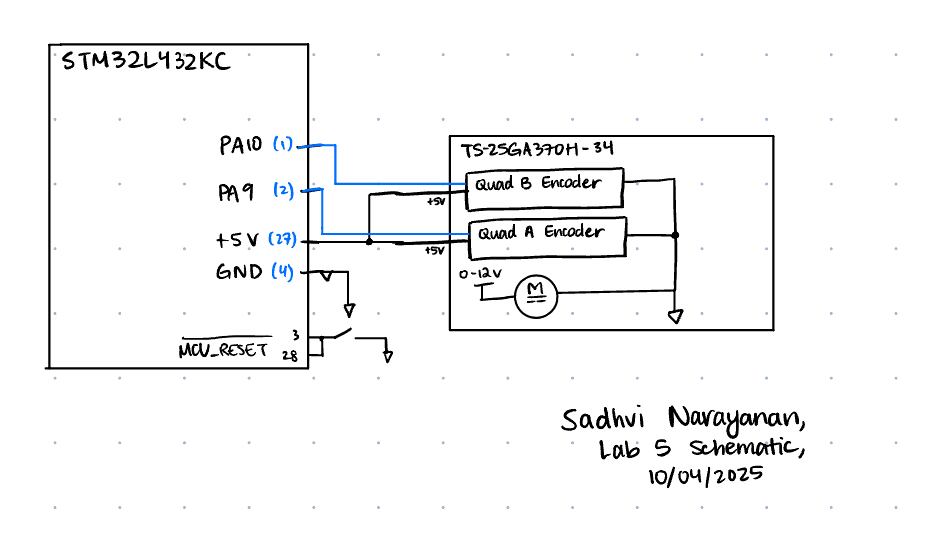 STM32L432KC
PA10 (1)
PA9 (2)
+5V (27)
GND (4)
MCU_RESET
3
28
TS-25GA370H-34
Quad B Encoder
+5V
Quad A Encoder
+5V
0-12V
M
Sadhvi Narayanan,
Lab 5 Schematic,
10/04/2025